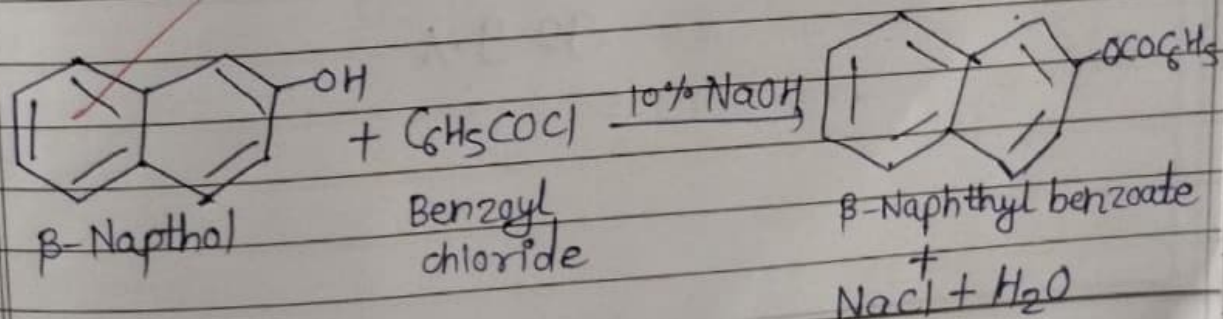 -OH
+ C6H5COCl 10% NaOH
-OCOC6H5
β-Napthol
Benzoyl
chloride
β-Naphthyl benzoate
+
NaCl + H2O